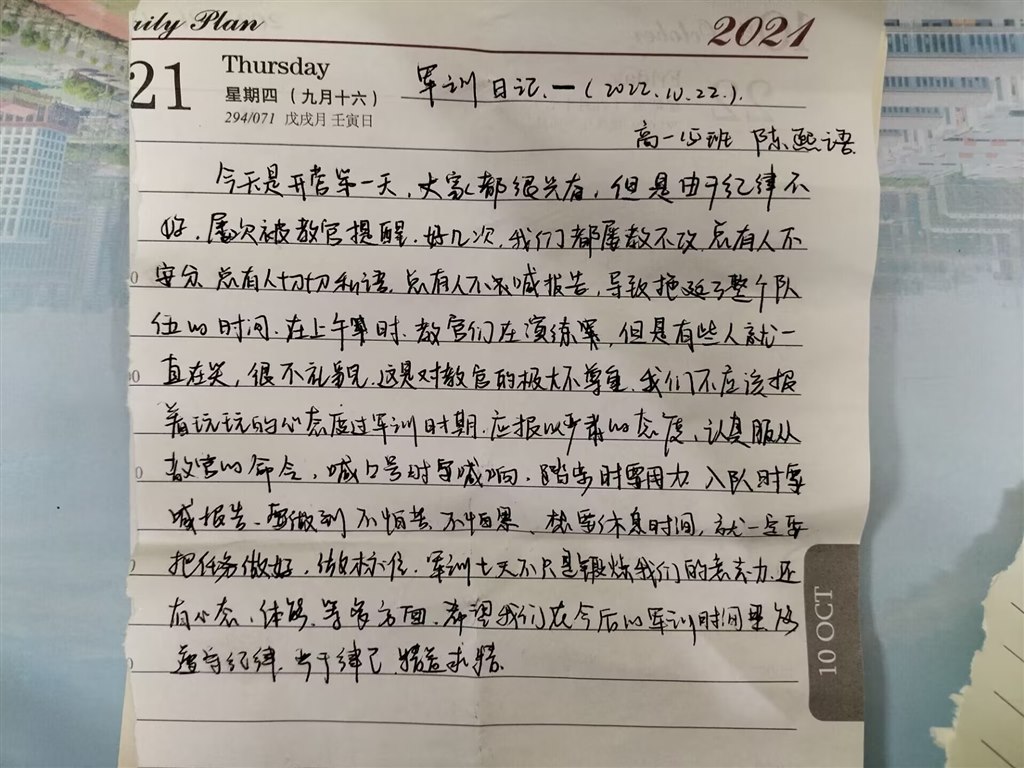 Daily Plan
2021
21
Thursday
星期四（九月十六）
294/071 戊戌月 壬寅日
军训日记.一(2022.10.22).
高一 班 陈熙语
今天是开营第一天，大家都很兴奋，但是由于纪律不
好，屡次被教官提醒.好几次，我们都屡教不改，总有人不
安分，总有人切切私语，总有人不 喊报告，导致拖延了整个队
伍的时间.在上午 时，教官们在演练 ，但是有些人就一
直在笑，很不礼貌，这是对教官的极大不尊重.我们不应该报
着玩玩的心态度过军训时期.应报以严肃的态度，认真服从
教官的命令，喊口号时要喊响，踏步时要用力，入队时要
喊报告.要做到不怕苦不怕累， 要休息时间，就一定要
把任务做好，做标准.军训七天不只是锻炼我们的意志力，还
有心态，体能，等多方面.希望我们在今后的军训时间里能
遵守纪律，严于律己，精益求精.
10 OCT